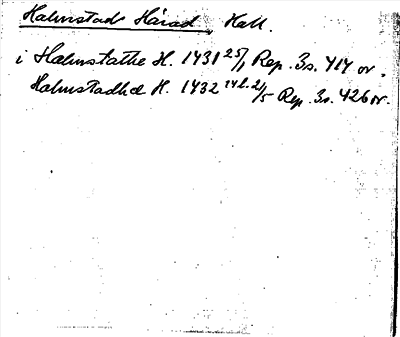 Halmstads Härad, Hall.
i Halmstathe H. 1431 25/1 Rep. 3s. 414 or.
Halmstadhæ H. 1432 2/5 Rep. 3s. 426 or.